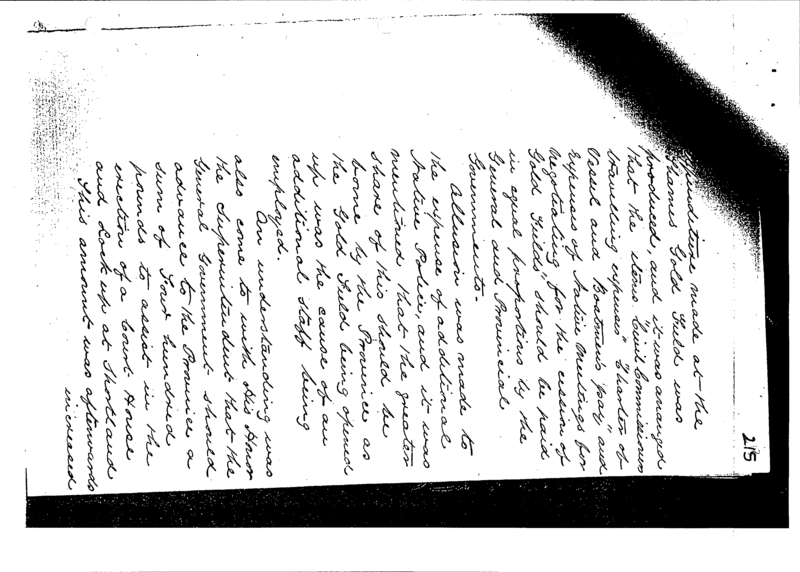 215
Expenditure made at the
Thames Gold Field was
produced, and it was arranged
that the items "Civil Commissioners
travelling expenses" "Charter of
Vessel and Boatmens pay," and
Expenses of Native Meetings for
Negotiating for the cession of
Gold Fields" should be paid
in equal proportions by the
General and Provincial
Governments.
Allusion was made to
the expense of additional
Native Police, and it was
mentioned that the greater
share of this should be
borne by the Province as
the Gold Field being opened
up was the cause of an
additional staff being
employed.
An understanding was
also come to with His Honor
the Superintendent that the
General Government should
advance to the Province a
sum of Four hundred
pounds to assist in the
erection of a Court House
and Lock up at Shortland
This amount was afterwards
increased